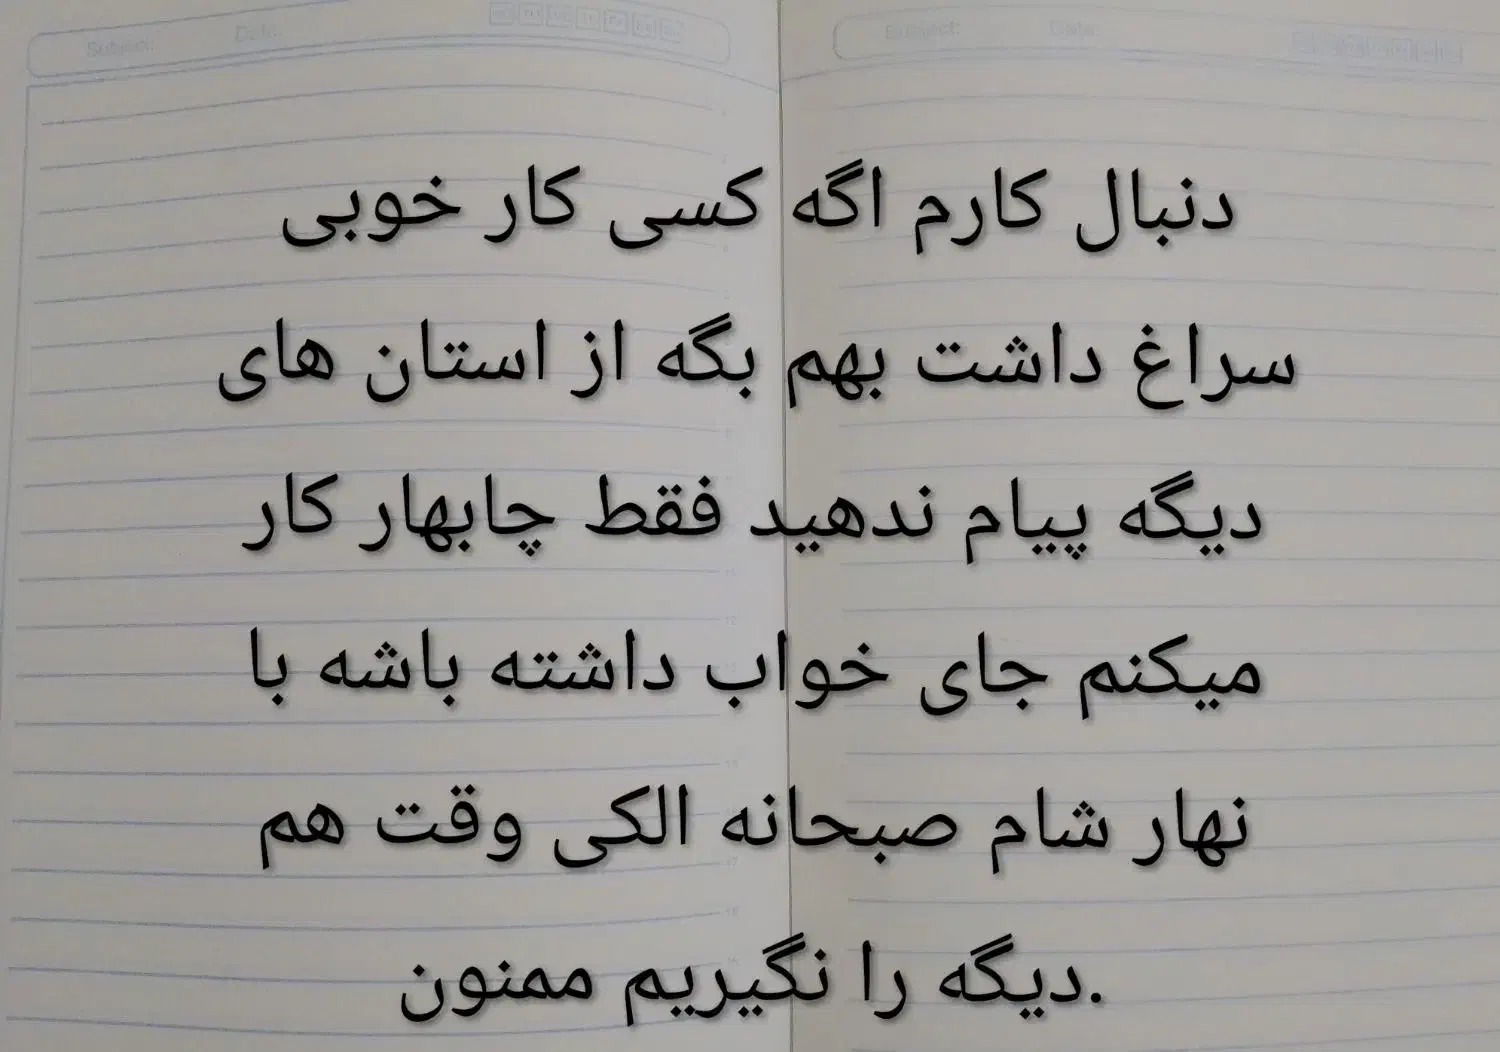 Subject: Date:
Subject: Date:
دنبال کارم اگه کسی کار خوبی
سراغ داشت بهم بگه از استان های
دیگه پیام ندهید فقط چابهار کار
میکنم جای خواب داشته باشه با
نهار شام صبحانه الکی وقت هم
.دیگه را نگیریم ممنون